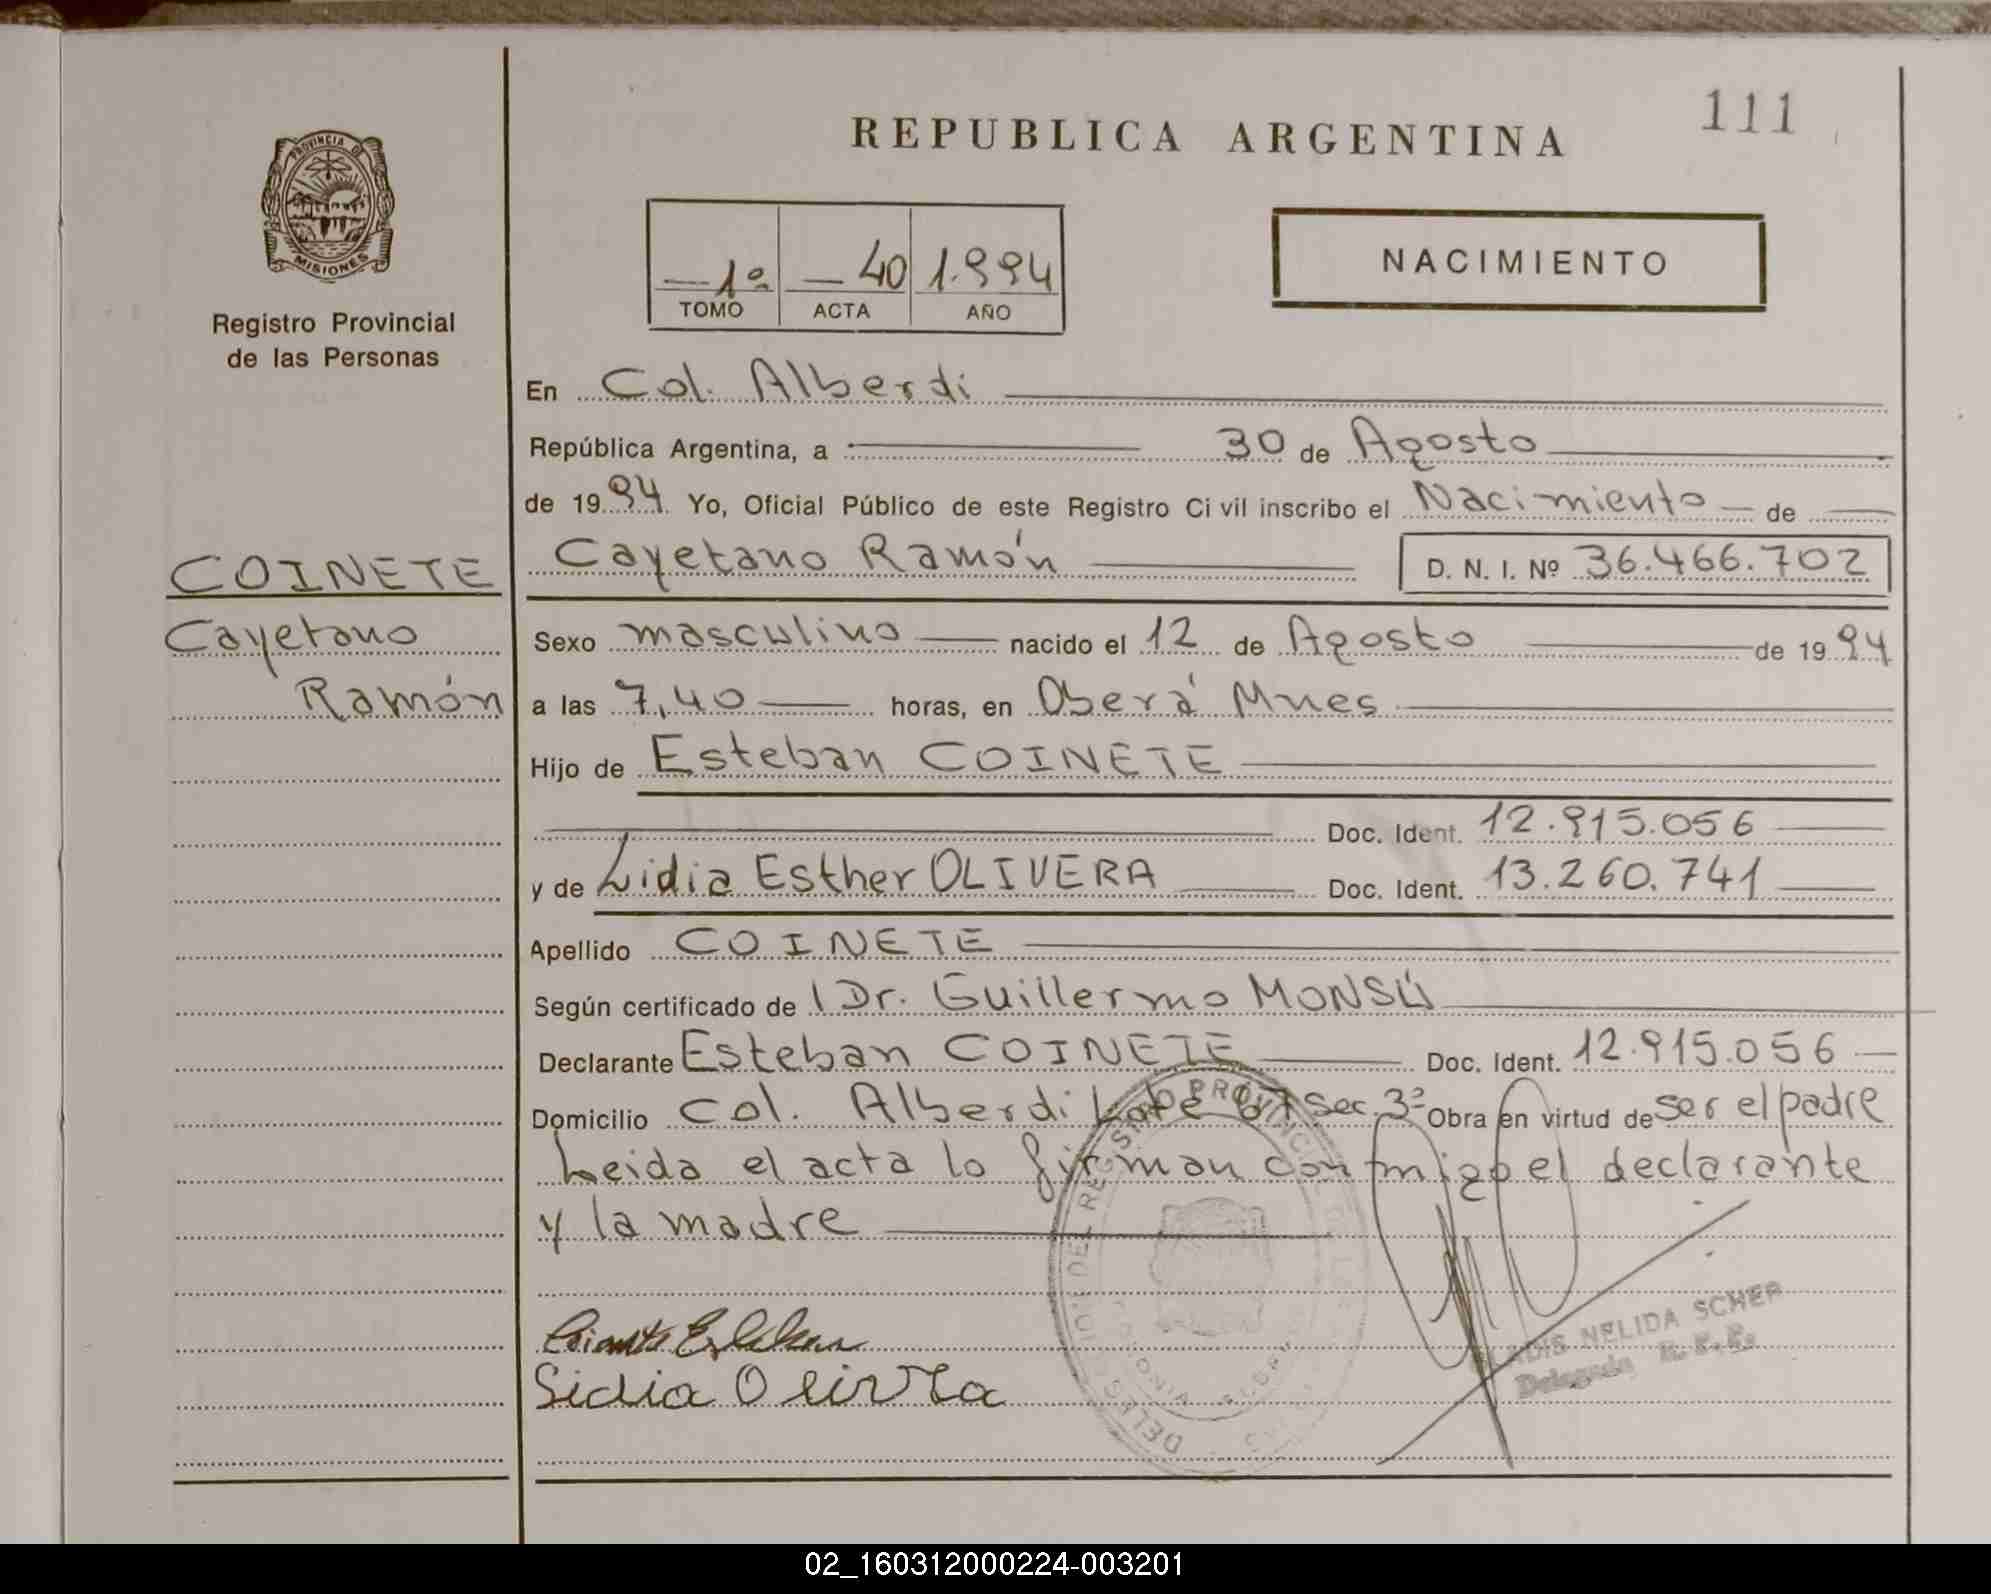 PROVINCIA DE
MISIONES
Registro Provincial
de las Personas
COINETE
Cayetano
Ramón
111
REPUBLICA ARGENTINA
1º 40 1.994
TOMO ACTA AÑO
NACIMIENTO
En Col. Alberdi
República Argentina, a 30 de Agosto
de 1994 Yo, Oficial Público de este Registro Civil inscribo el Nacimiento de
Cayetano Ramón D. N. I. Nº 36.466.702
Sexo masculino nacido el 12 de Agosto de 1994
a las 7,40 horas, en Oberá Mnes
Hijo de Esteban COINETE
Doc. Ident. 12.915.056
y de Lidia Esther OLIVERA Doc. Ident. 13.260.741
Apellido COINETE
Según certificado de l Dr. Guillermo MONSÚ
Declarante Esteban COINETE Doc. Ident. 12.915.056
Domicilio Col. Alberdi Lote 67 Sec. 3ª Obra en virtud de ser el padre
Leida el acta lo firman conmigo el declarante
y la madre
Coinete Esteban
Sidia Olivera
NELIDA SCHER
Delegada R. P. P.
DEL REGISTRO PROVINCIAL DE LAS
02_160312000224-003201